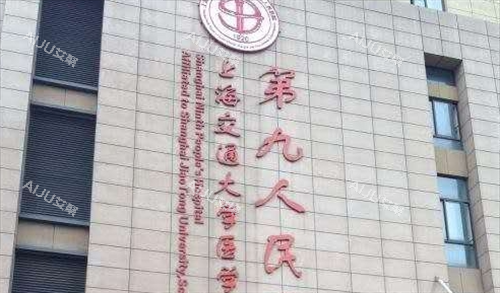 1920
第九人民
上海交通大学医学
Shanghai Ninth People's Hospital
Affiliated to Shanghai Jiao Tong University Sc
AIJU艾聚
AIJU艾聚
AIJU艾聚
AIJU艾聚
AIJU艾聚
AIJU艾聚